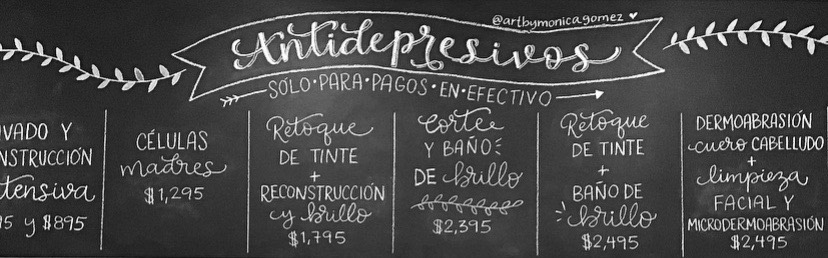 @artbymonicagomez
Antidepresivos
SÓLO•PARA•PAGOS•EN•EFECTIVO
VADO Y
NSTRUCCIÓN
tensiva
95 y $895
CÉLULAS
madres
$1,295
Retoque
DE TINTE
+
RECONSTRUCCIÓN
y brillo
$1,795
Corte
Y BAÑO
DE brillo
$2,395
Retoque
DE TINTE
+
BAÑO DE
brillo
$2,495
DERMOABRASIÓN
cuero CABELLUDO
+
limpieza
FACIAL Y
MICRODERMOABRASIÓN
$2,495